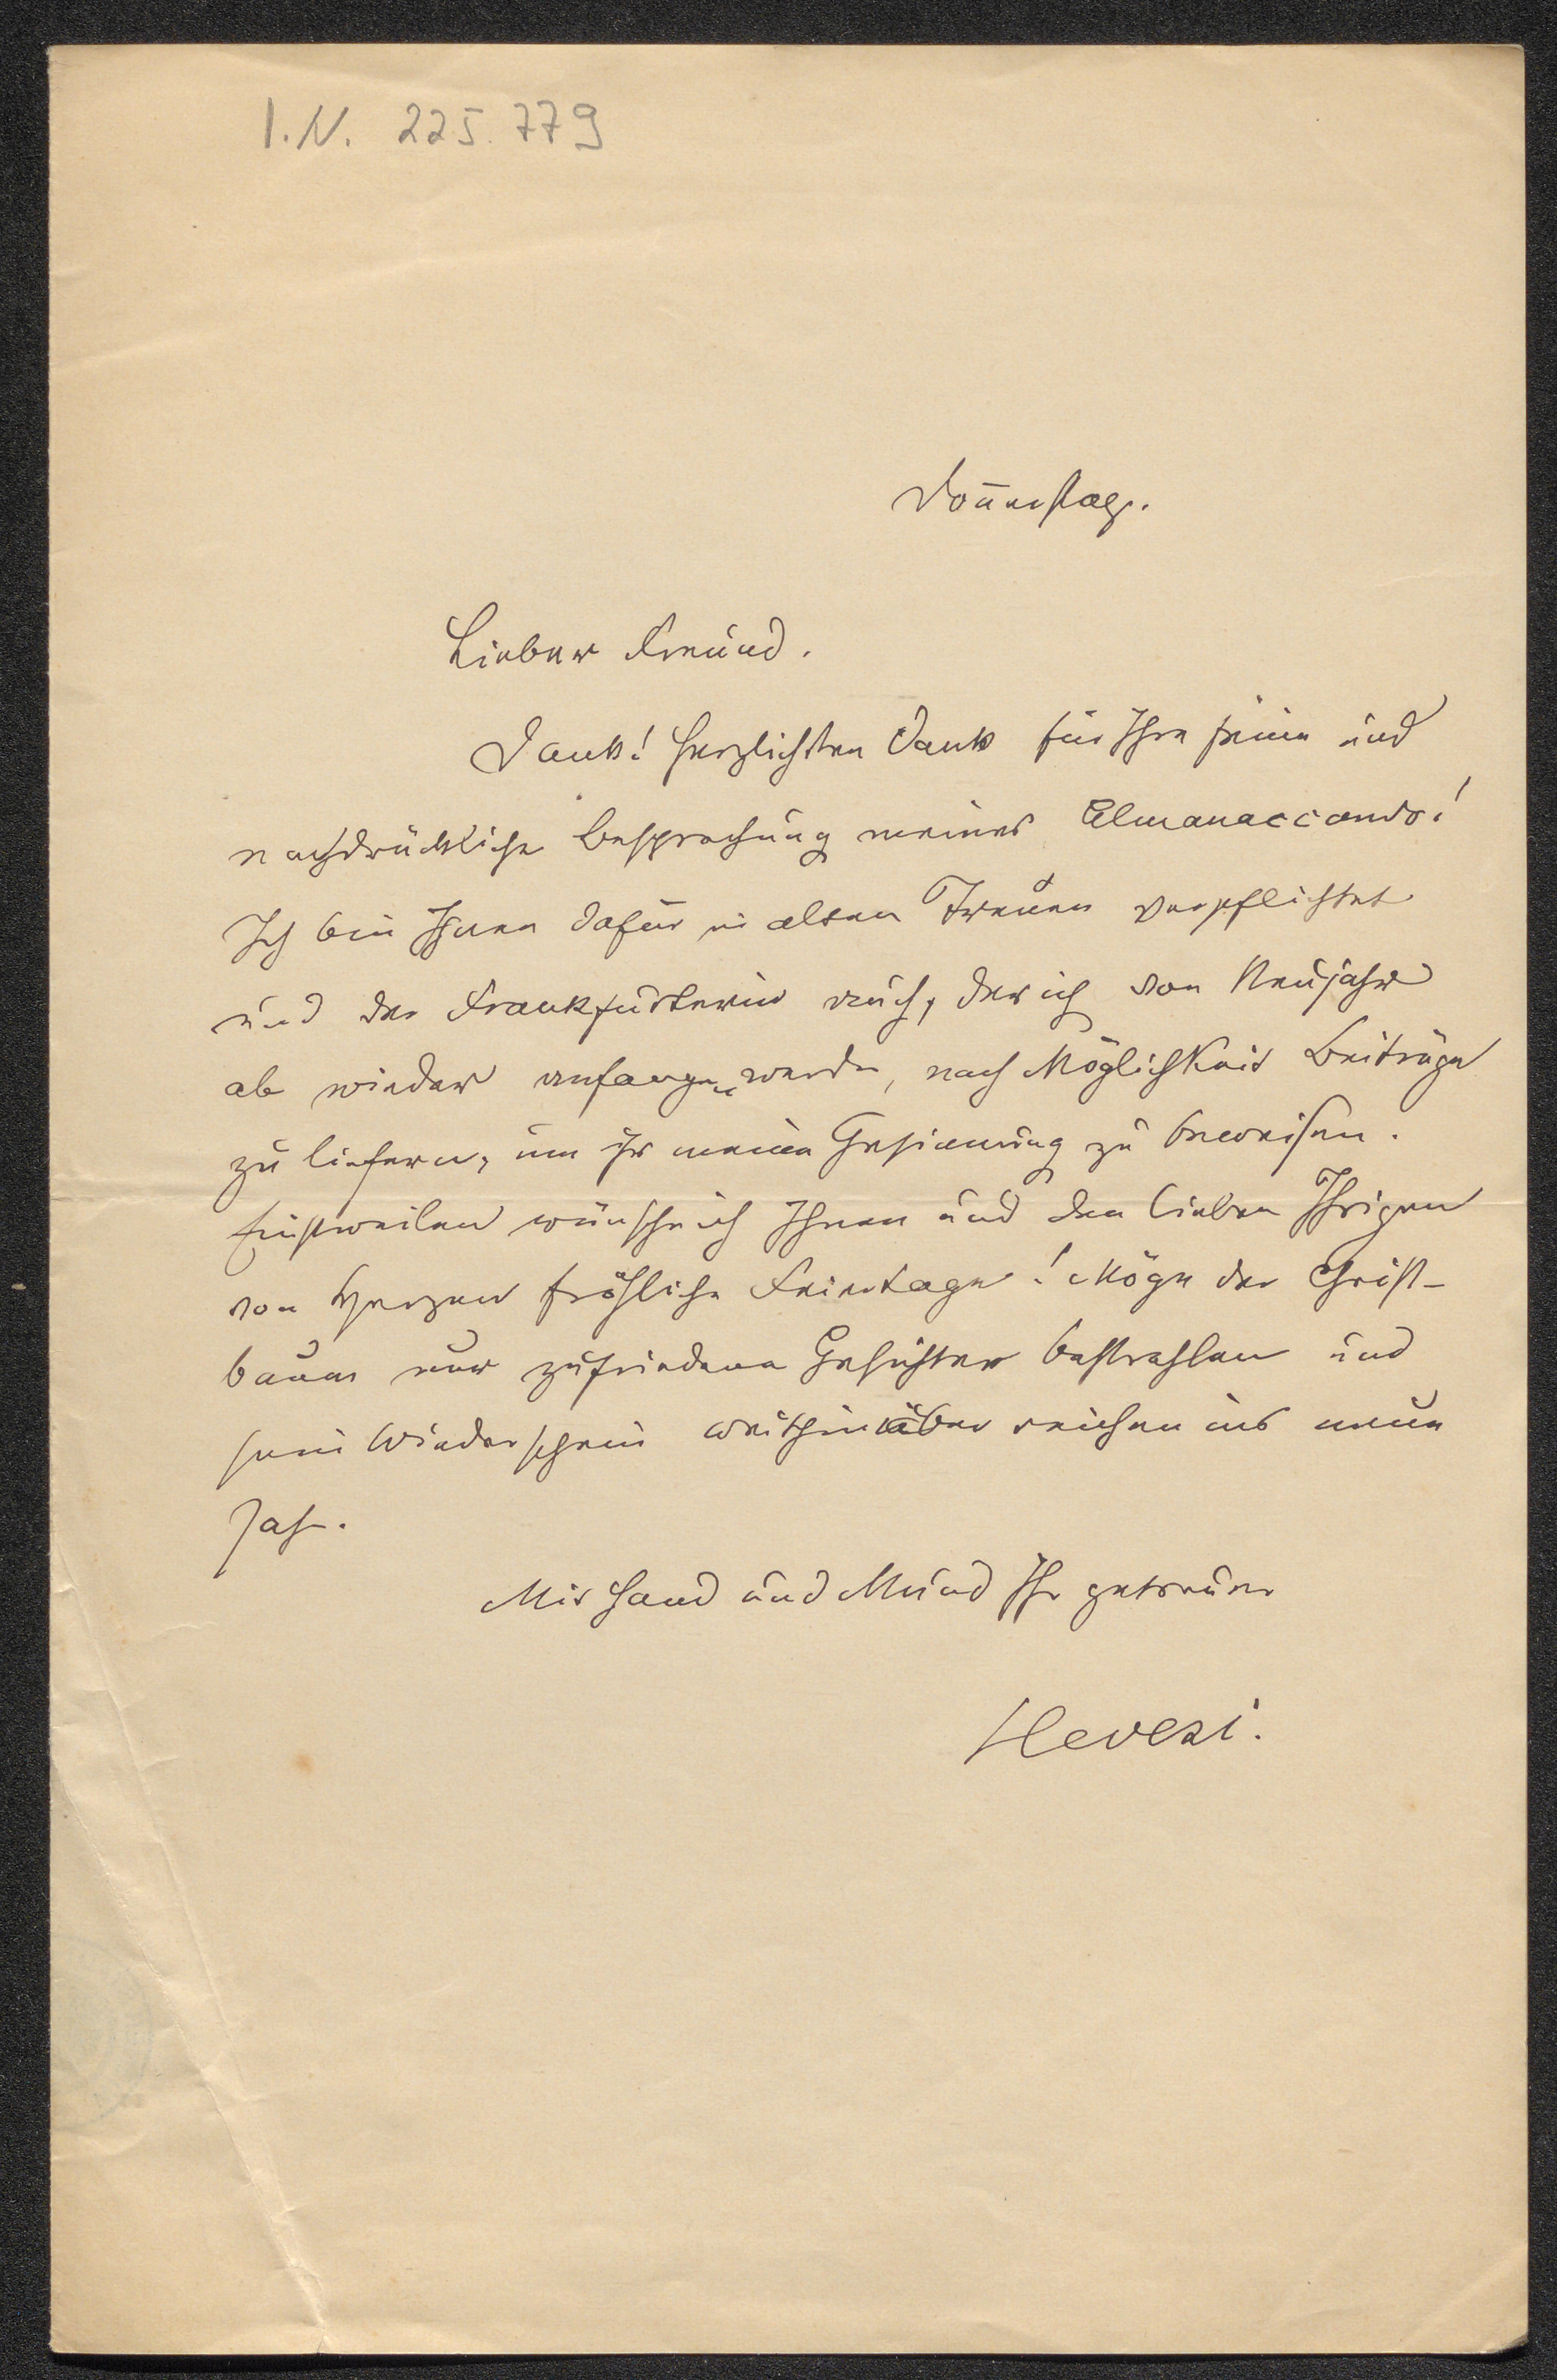 I.N. 225.779
Donnerstag.
Lieber Freund.
Dank! Herzlichsten Dank für Ihre feine und
nachdrückliche Besprechung meines Almanaccando!
Ich bin Ihnen dafür in alten Treuen verpflichtet
und der Frankfurterin auch, der ich von Neujahr
ab wieder anfangen werde, nach Möglichkeit Beiträge
zu liefern, um ihr meine Gesinnung zu beweisen.
Einstweilen wünsche ich Ihnen und den lieben Ihrigen
von Herzen fröhliche Feiertage! Möge der Christ-
baum nur zufriedene Gesichter bestrahlen und
sein Wiederschein weithinüber reichen ins neue
Jahr.
Mit Hand und Mund Ihr getreuer
Hevesi.